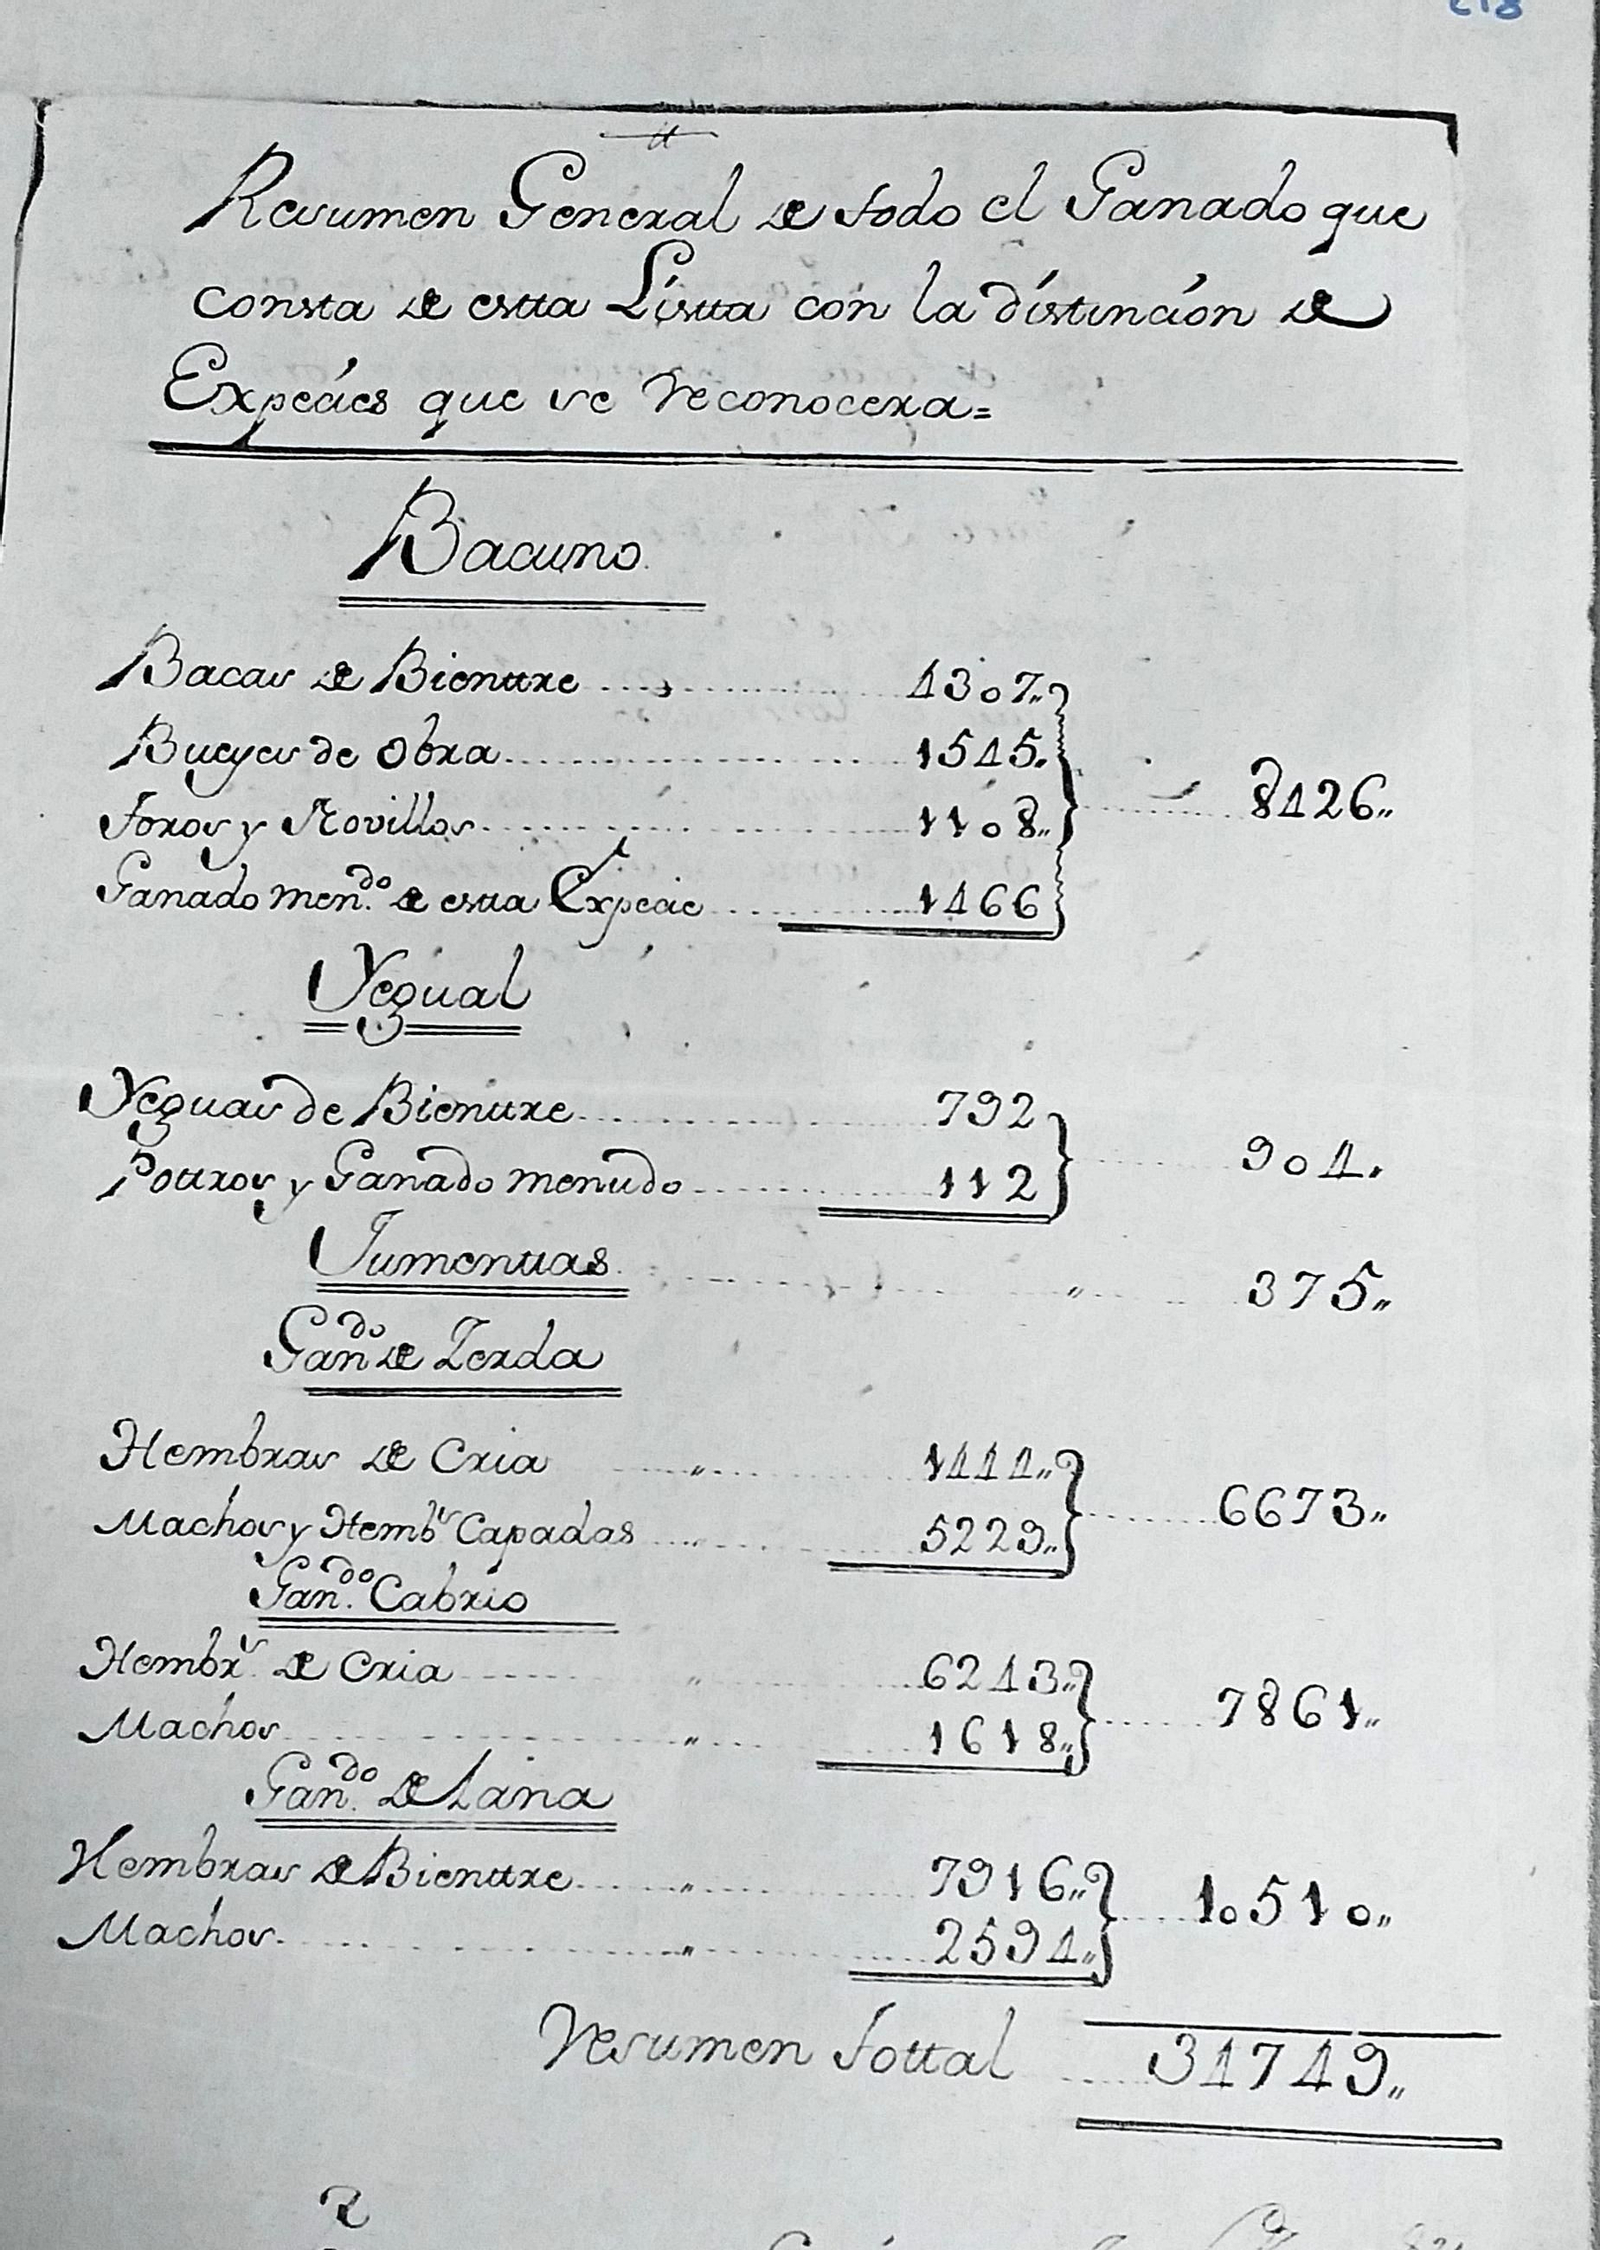 Resumen General de todo el Ganado que
consta de estta Listta con la distincion de
Expecies que se reconocera=
Bacuno.
Bacas de Bienttre 4307
Bueyes de Obra 1545
Toros y Novillos 1108 8426
Ganado men.do de estta Expecie 1466
Yegual
Yeguas de Bienttre 792
Pottros y Ganado menudo 112 904
Jumenttas 375
Gan.do de Zerda
Hembras de Cria 1444
Machos y Hemb.s Capadas 5229 6673
Gan.do Cabrio
Hembr.s de Cria 6243
Machos 1618 7861
Gan.do de Lana
Hembras de Bienttre 7916
Machos 2594 10510
Resumen tottal 34749